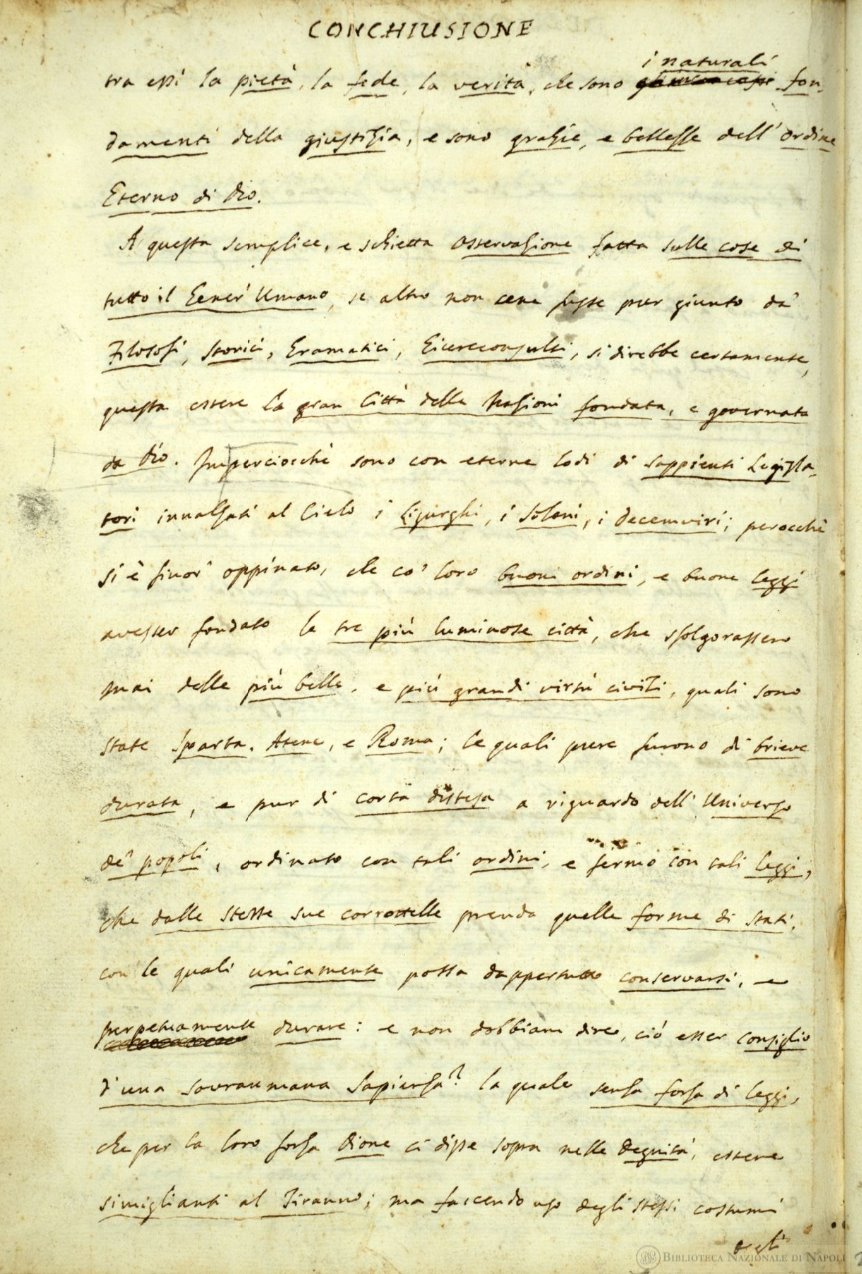 CONCHIUSIONE
i naturali
tra essi la pietà, la fede, la verità, che sono fon-
damenti della giustizia, e sono grazie, e bellezze dell' Ordine
Eterno di Dio.
A questa semplice, e schietta osservazione fatta sulle cose di
tutto il Gener' Umano, se altro non cene fusse pur giunto da'
Filosofi, Storici, Gramatici, Giureconsulti, si direbbe certamente,
questa essere la gran Città delle Nazioni fondata, e governata
da Dio. Imperciocchè sono con eterne lodi di sappienti Legisla-
tori innalzati al Cielo i Ligurghi, i Soloni, i decemviri; perocchè
si è finor' oppinato, che co' loro buoni ordini, e buone leggi
avesser fondato le tre più luminose città, che sfolgorassero
mai delle più belle, e più grandi virtù civili, quali sono
state Sparta, Atene, e Roma; le quali pure furono di brieve
durata, e pur di corta distesa a riguardo dell' Universo
de' popoli, ordinato con tali ordini, e fermo con tali leggi,
che dalle stesse sue corrottelle prenda quelle forme di Stati,
con le quali unicamente possa dappertutto conservarsi, e
perpetuamente durare: e non dobbiam dire, ciò esser consiglio
d' una sovraumana Sapienza? la quale senza forza di leggi,
che per la loro forza Dione ci disse sopra nelle Degnità, essere
simiglianti al Tiranno; ma facendo uso degli stessi costumi
degli
BIBLIOTECA NAZIONALE DI NAPOLI